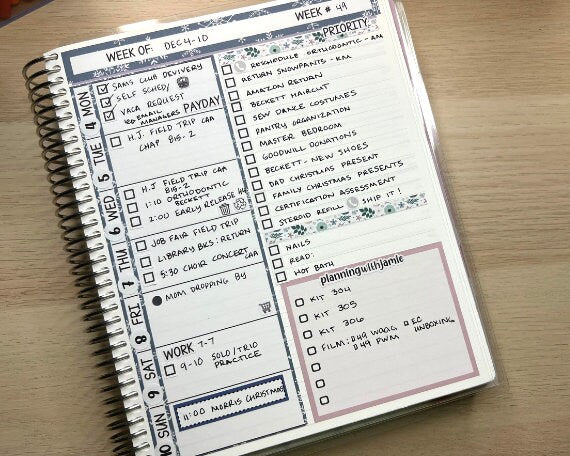 WEEK OF: DEC 4-10
WEEK # 49
4 MON
SAMS CLUB DEVIVERY
SELF SCHEDY
VACA REQUEST
EMAIL MANAGERS PAYDAY
5 TUE
H.J. FIELD TRIP CAA
CHAP 815-2
6 WED
H.J FIELD TRIP CAA
815-2
1:10 ORTHODONTIC
BECKETT
2:00 EARLY RELEASE HG
7 THU
JOB FAIR FIELD TRIP
LIBRARY BKS: RETURN
5:30 CHOIR CONCERT CAA
8 FRI
MOM DROPPING BY
9 SAT
WORK 7-7
9-10 SOLO/TRIO
PRACTICE
10 SUN
11:00 MORRIS CHRISTMAS
PRIORITY
RESCHDULE ORTHODONTIC - AM
RETURN SNOWPANTS - KM
AMAZON RETURN
BECKETT HAIRCUT
SEW DANCE COSTUMES
PANTRY ORGANIZATION
MASTER BEDROOM
GOODWILL DONATIONS
BECKETT - NEW SHOES
DAD CHRISTMAS PRESENT
FAMILY CHRISTMAS PRESENTS
CERTIFICATION ASSESSMENT
STEROID REFILL SHIP IT!
NAILS
READ:
HOT BATH
planningwithjamie
KIT 304
KIT 305
KIT 306
FILM: D49 WAAG EC UNBOXING
D49 PWM